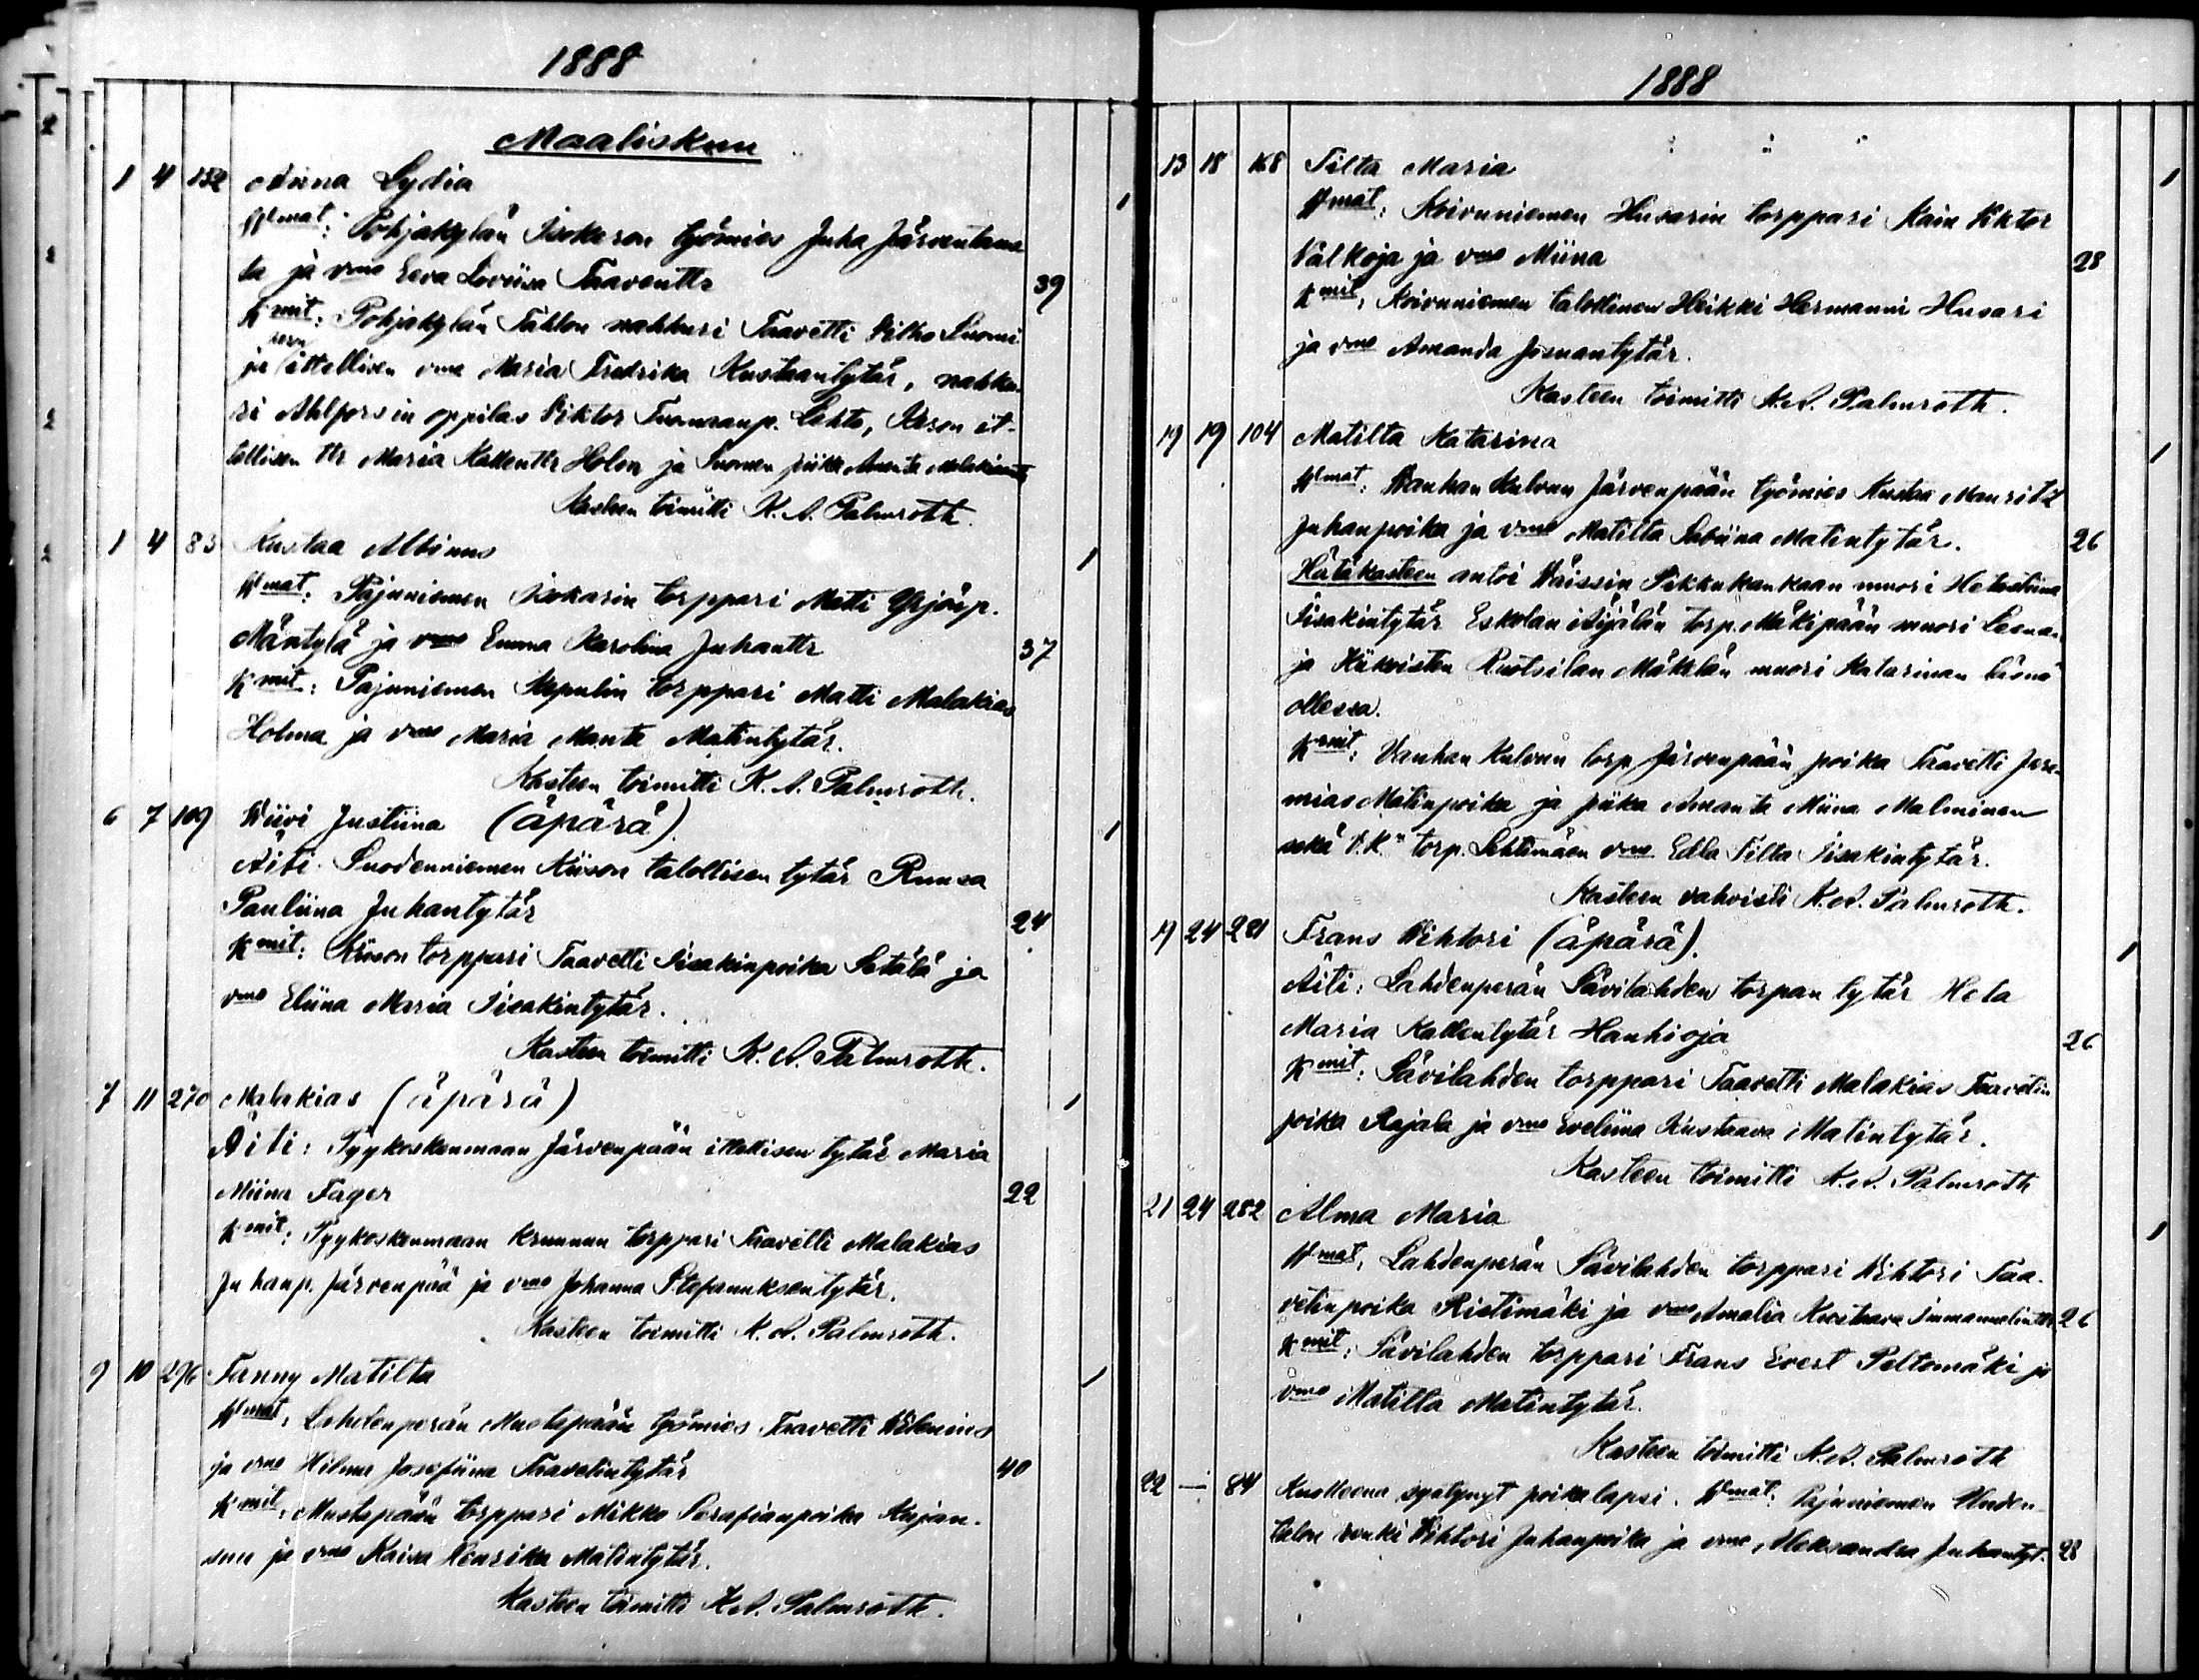 1888
Maaliskuu
1 4 132 Miina Lydia
Wmat: Pohjakylän Isokeson työmies Juha Järventausta
ja vmo Eeva Loviisa Taavintr 39
Kmit: Pohjakylän Tahlon nahkuri Taavetti Vilho Suomi
ja ittellisen vmo Maria Fredrika Kustaantytär, nahku-
ri Ahlforsin oppilas Viktor Tuomaanp. Lehto, Keson it-
tellisen ttr Maria Kallenttr Holm ja Suomen piika Amanta
Kasteen toimitti K. A. Palmroth.
1 4 83 Kustaa Albinus
Wmat: Pajuniemen Isokarin torppari Matti Yrjönp.
Mäntylä ja vmo Emma Karolina Juhanttr 37
Kmit: Pajuniemen torppari Matti Malakias
Holma ja vmo Maria Manta Matintytär.
Kasteen toimitti K. A. Palmroth.
6 7 109 Wiivi Justiina (äpärä).
Äiti. Suodenniemen Kiison talollisen tytär Ruusa
Pauliina Juhantytär 24
Kmit: Kiison torppari Taavetti Iisakinpoika Setälä ja
vmo Eliina Maria Iisakintytär.
Kasteen toimitti K. A. Palmroth.
7 11 270 Malakias (äpärä)
Äiti: Pyykoskenmaan Järvenpään itsellisen tytär Maria
Miina Fager 22
Kmit: Pyykoskenmaan Krunnun torppari Taavetti Malakias
Juhanp. Järvenpää ja vmo Johanna Stefanuksentytär.
Kasteen toimitti K. A. Palmroth.
9 10 296 Fanny Matilta
Wmat: Lahdenperän Mustapään työmies Taavetti Wilenius
ja vmo Hilma Josefiina Taavetintytär 40
Kmit: Mustapään torppari Mikko Serafianpoika Kujan-
suu ja vmo Kaisa Henrika Matintytär.
Kasteen toimitti K. A. Palmroth.
1888
13 18 168 Tilta Maria
Wmat: Koivuniemen Husarin torppari Kain Viktor
Välkoja ja vmo Miina 28
Kmit: Koivuniemen talollinen Heikki Hermanni Husari
ja vmo Amanda Joonantytär.
Kasteen toimitti K. A. Palmroth.
19 19 104 Matilta Katarina
Wmat: Wanhan Kulvun Järvenpään työmies Kustaa Mauritz
Juhanpoika ja vmo Matilta Sabiina Matintytär. 26
Hätäkasteen antoi Wäissin Pikkukankaan muori Hetastiina
Iisakintytär Eskolan Äijälän torp. Mäkipään muori Leena
ja Kiikoisten Ruotsilan Mäkelän muori Katarinan läsnä
ollessa.
Kmit: Vanhan Kulvun torp. Järvenpään poika Taavetti Jere-
mias Matinpoika ja piika Amanta Miina Malminen
sekä V.K:n torp. Lehtimäen vmo Edla Tilta Iisakintytär.
Kasteen vahvisti K. A. Palmroth.
19 24 281 Frans Wihtori (äpärä).
Äiti: Lahdenperän Sävilahden torpan tytär Heta
Maria Kallentytär Hanhioja 26
Kmit: Sävilahden torppari Taavetti Malakias Taavetin-
poika Rajala ja vmo Eveliina Kustaava Matintytär.
Kasteen toimitti K. A. Palmroth
21 24 282 Alma Maria
Wmat: Lahdenperän Sävilahden torppari Wihtori Taa-
vetinpoika Ristimäki ja vmo Amalia Kustaava Immanuelinttr 26
Kmit: Sävilahden torppari Frans Evert Peltomäki ja
vmo Matilta Matintytär.
Kasteen toimitti K. A. Palmroth
22 — 84 Kuolleena syntynyt poikalapsi. Wmat: Pajuniemen Uuden-
talon renki Wihtori Juhanpoika ja vmo Aleksandra Juhantyt. 28